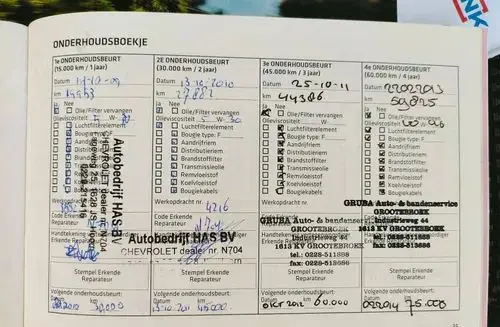 NK
ONDERHOUDSBOEKJE
1e ONDERHOUDSBEURT
(15.000 km / 1 jaar)
Datum
km
Ja Nee
Olie/Filter vervangen
Olieviscositeit 5 W-
Luchtfilterelement
Autobedrijf HAS BV
CHEVROLET dealer nr. N704
Stempel Erkende
Reparateur
Volgende onderhoudsbeurt:
Datum km
30.000
2E ONDERHOUDSBEURT
(30.000 km / 2 jaar)
Datum 13-10-2010
km
Ja Nee
Olie/Filter vervangen
Olieviscositeit 5 W-30
Luchtfilterelement
Bougie type: F
Aandrijfriem
Distributieriem
Brandstoffilter
Transmissieolie
Remvloeistof
Koelvloeistof
Bougiekabels
Werkopdracht nr.
4216
Code Erkende
Reparateur
Autobedrijf HAS BV
CHEVROLET dealer nr. N704
Stempel Erkende
Reparateur
Volgende onderhoudsbeurt:
Datum km
45.000
3e ONDERHOUDSBEURT
(45.000 km / 3 jaar)
Datum 25-10-11
km 44386
Ja Nee
Olie/Filter vervangen
Olieviscositeit W-
Luchtfilterelement
Bougie type: F
Aandrijfriem
Distributieriem
Brandstoffilter
Transmissieolie
Remvloeistof
Koelvloeistof
Bougiekabels
GRUBA Auto- & bandenservice
GROOTEBROEK
Industrieweg 44
1613 KV GROOTEBROEK
tel.: 0228-511888
fax: 0228-513586
Stempel Erkende
Reparateur
Volgende onderhoudsbeurt:
Datum km
okt 2012 60.000
4e ONDERHOUDSBEURT
(60.000 km / 4 jaar)
Datum 22022013
km 59.825
Ja Nee
Olie/Filter vervangen
Olieviscositeit
Luchtfilterelement
Bougie type: F
Aandrijfriem
Distributieriem
Brandstoffilter
Transmissieolie
Remvloeistof
Koelvloeistof
Bougiekabels
GRUBA Auto- & bandenservice
GROOTEBROEK
Industrieweg 44
1613 KV GROOTEBROEK
tel.: 0228-511888
fax: 0228-513586
Stempel Erkende
Reparateur
Volgende onderhoudsbeurt:
Datum km
022014 75.000